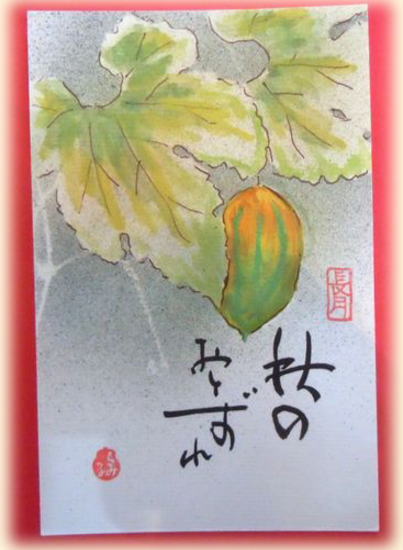 長月
秋の
おとずれ